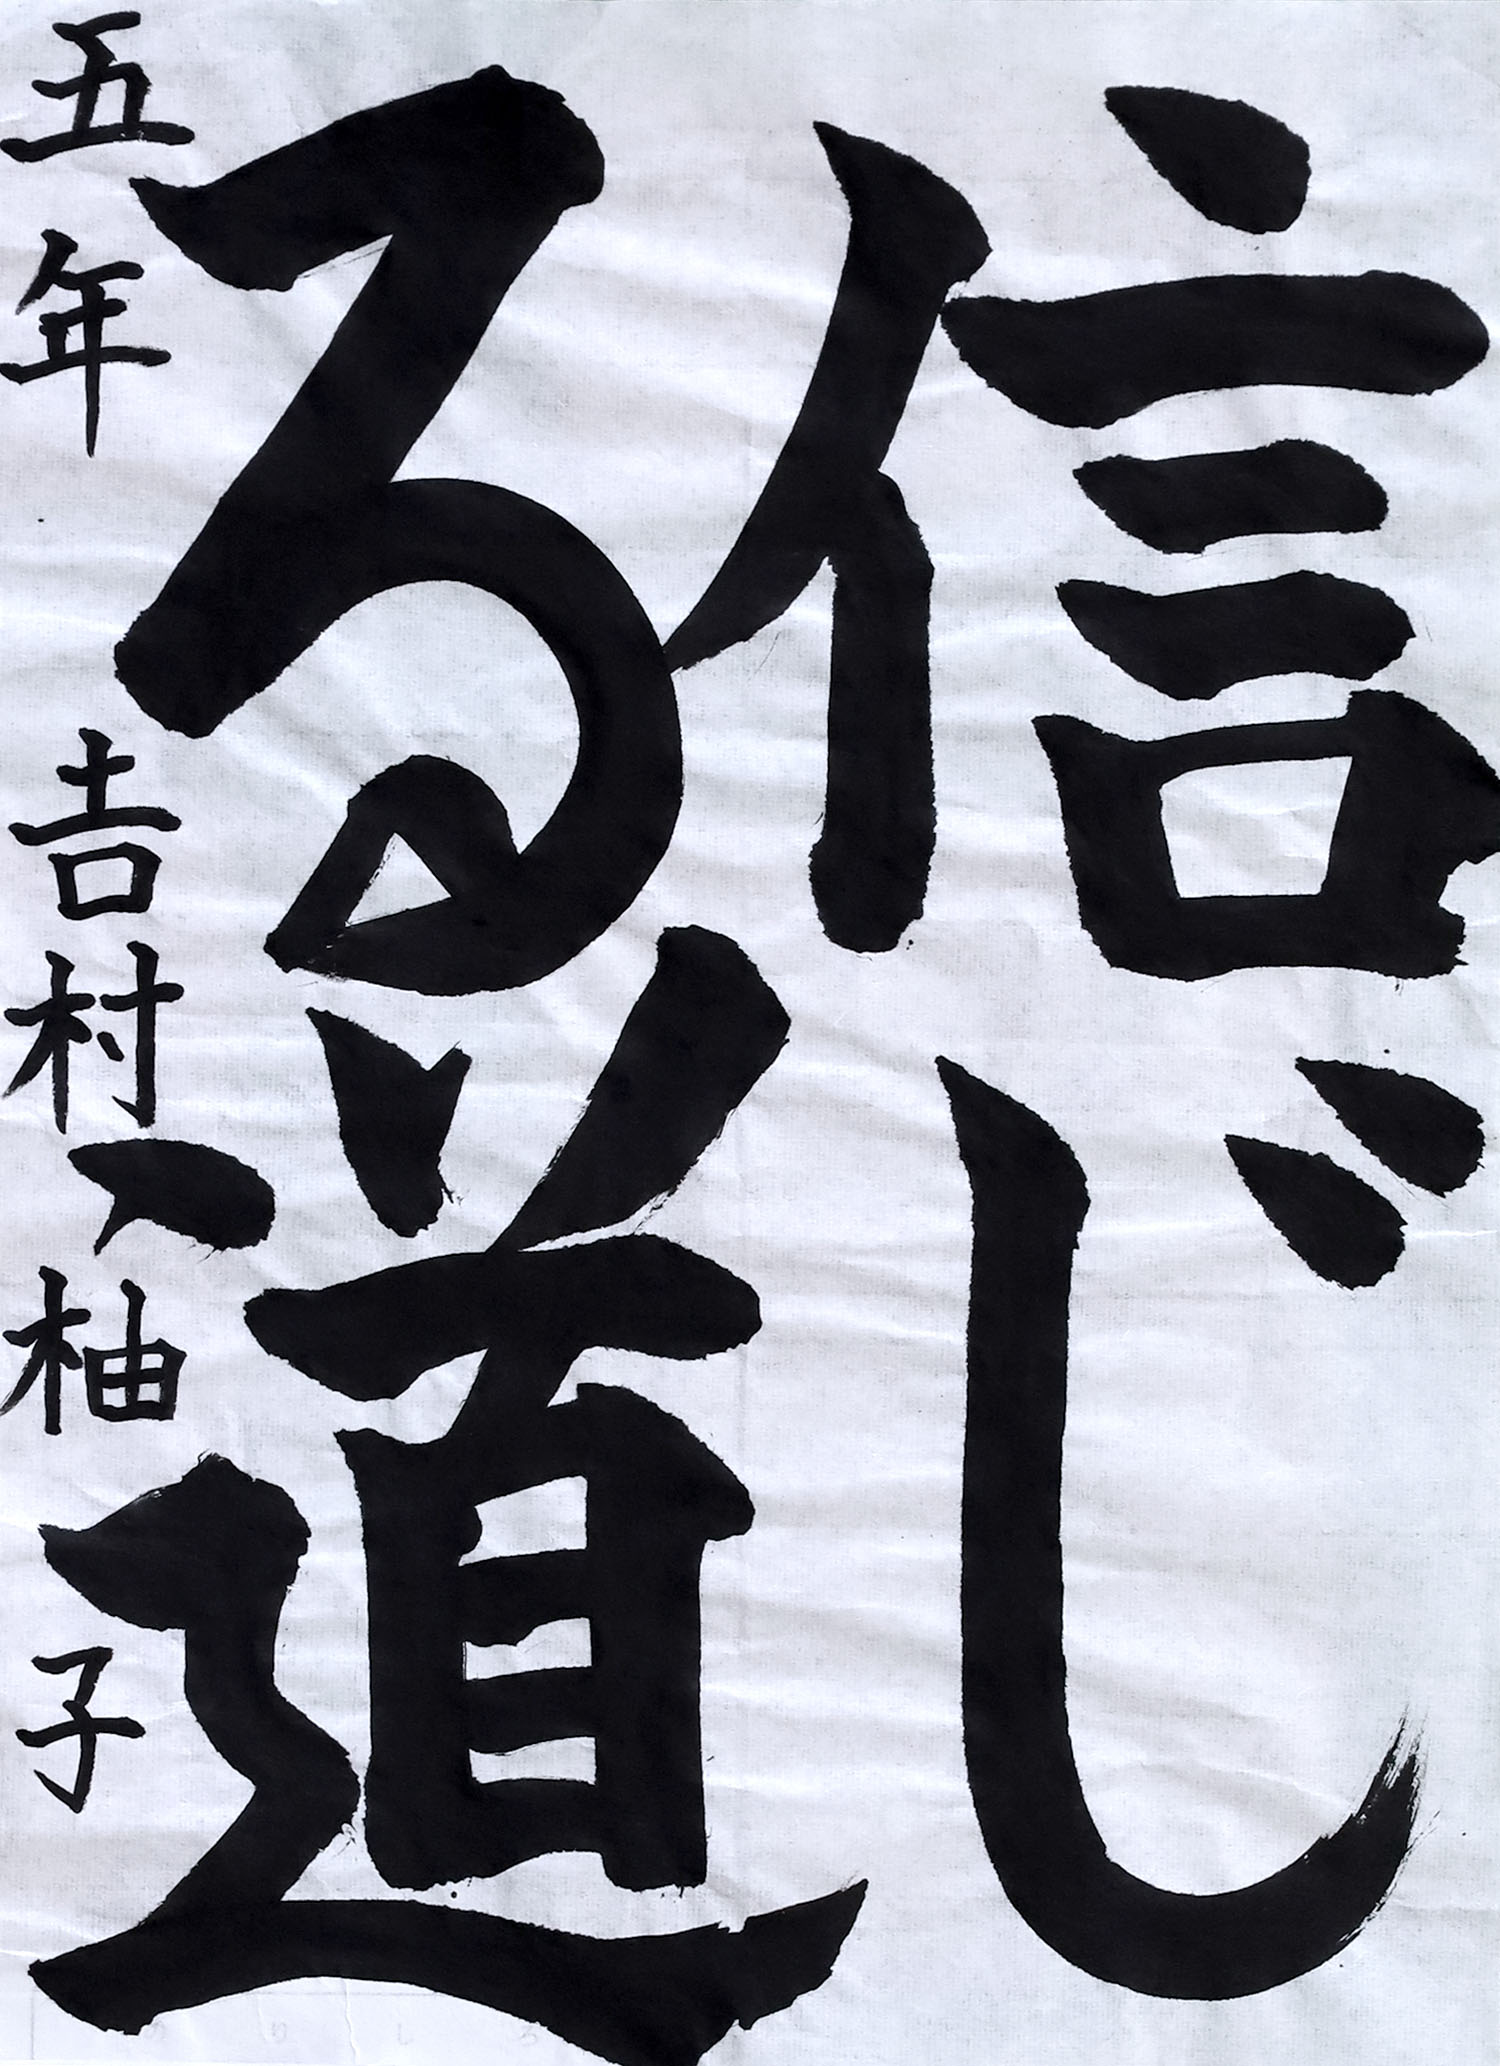 信じ
る道
五年 吉村柚子